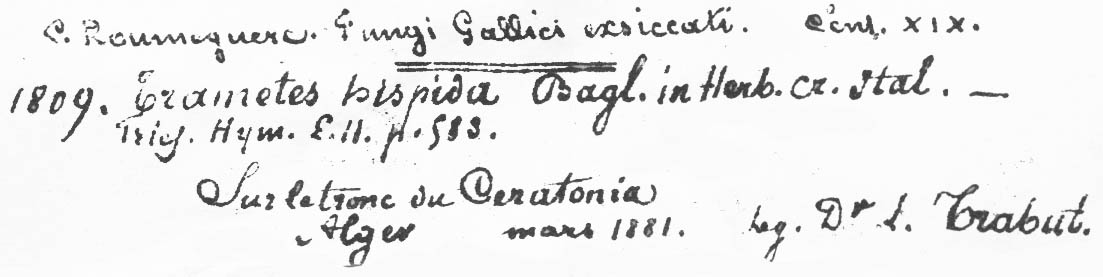 C. Roumeguere. Fungi Gallici exsiccati. Cent. XIX.
1809. Trametes hispida Bagl. in Herb. cr. Ital. —
Fries. Hym. E. II. p. 583.
Sur le tronc du Ceratonia
Alger mars 1881. Leg. Dr L. Trabut.